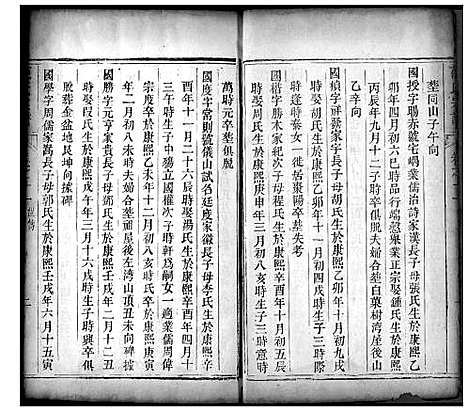 塋同山子午向
國授字賜赤號宅嵎業儒治詩家漢長子母張氏生於康
熙四年月初六巳時品行端慤舉業正宗娶鍾氏生於康熙
丙辰年九月十二子時卒俱脫夫婦合塋白菓樹湾屋後山
乙辛向
國禎字祥鰲家字長子母胡氏生於康熙乙卯年十一月初九戌
時娶胡氏生於康熙乙卯年十月初四戌時生子三時際
時逢時泰女一徙居棗陽卒塋失考
國楷字勝木家衩次子母程氏生於康熙辛酉年十月初五辰
時娶周氏生於康熙庚申年三月初八亥時生子三時意時
萬時元卒塋俱脫
國度字常則號儀山試名廷度家徽長子母李氏生於康熙辛
酉年十一月二十六辰時娶湯氏生於康熙辛酉年四月十
三午時生子中殤立國權次子時軒為嗣女一適業儒周偉
宗度卒於康熙乙未年十二月初三月初八亥時氏卒於康熙庚寅
年二月初八未時夫婦合塋祠屋後左湾山頂丑未向碑
國勝字元亨家貴長子母鄧氏生於康熙壬戌年二月十二丑
時娶段氏生於康熙戊午年三月十六戌時生子時興卒俱
脫葬金盆地艮坤向據碑
國學字周儒家嵩長子母郭氏生於康熙壬戌年六月十五寅